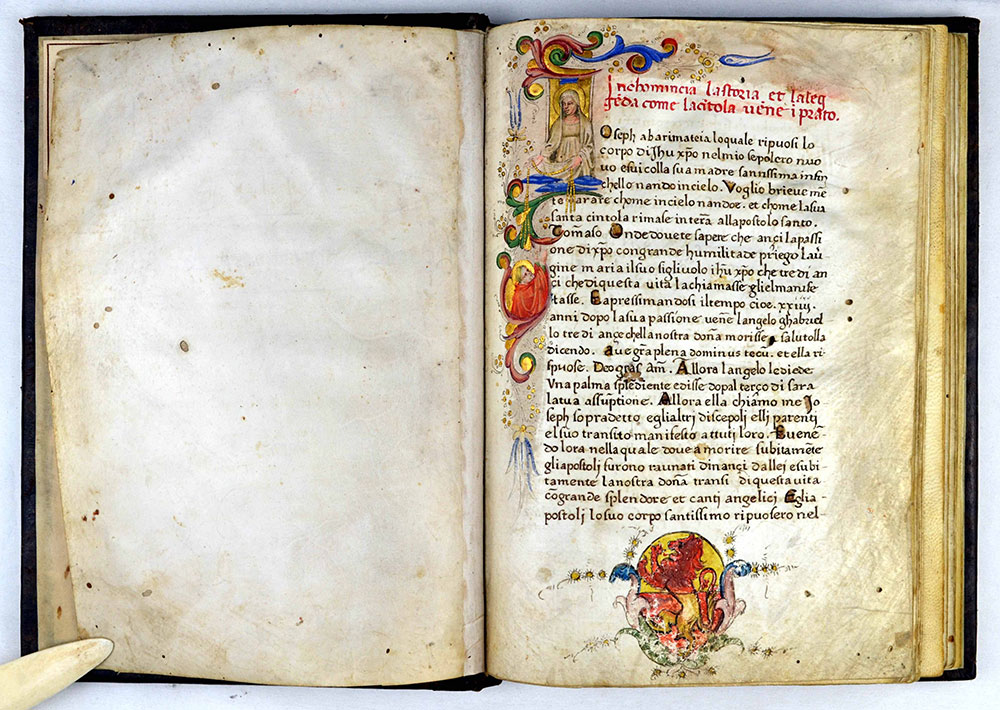 Inchomincia lastoria et laleg
gẽda come lacĩtola vẽne i prato.
Oseph abarimateia loquale ripuosi lo
corpo di Jhu xp̃o nelmio sepolcro nuo
vo esui colla sua madre santissima infin
chello nando incielo. Voglio brieve mẽ
te narrare chome incielo nandoe. et chome lasua
santa cintola rimase inter̃a allapostolo santo.
Tom̃aso Onde dovete sapere che ançi lapassi
one di xp̃o con grande humilitade priego lau̇
gine maria il suo figliuolo ihu xp̃o che tre di an
çi che di questa vita lachiamasse glielmanife
stasse. Eapressimandosi iltempo cioe. xxiiij.
anni dopo lasua passione vẽne langelo ghabriel
lo tre di ançe chella nostra dõna morisse, salutolla
dicendo. aue gr̃a plena dominus tecũ. et ella ri
spuose. Deo gr̃as Am̃. Allora langelo lediede
Vna palma sp̃lediente edisse dopal terço di sara
latua assũptione. Allora ella chiãmo me Jo
seph sopradetto eglialtri discepoli elli parenti
el suo transito manifesto attuti loro. Euenẽ
do lora nella quale dove a morire subitamẽte
gliapostolj furono raunati dinançi dallej esubi
tamente lanostra dõna transi di questa vita
cõgrande splendore et canti angelici Eglia
postolj lo suo corpo santissimo ripuosero nel